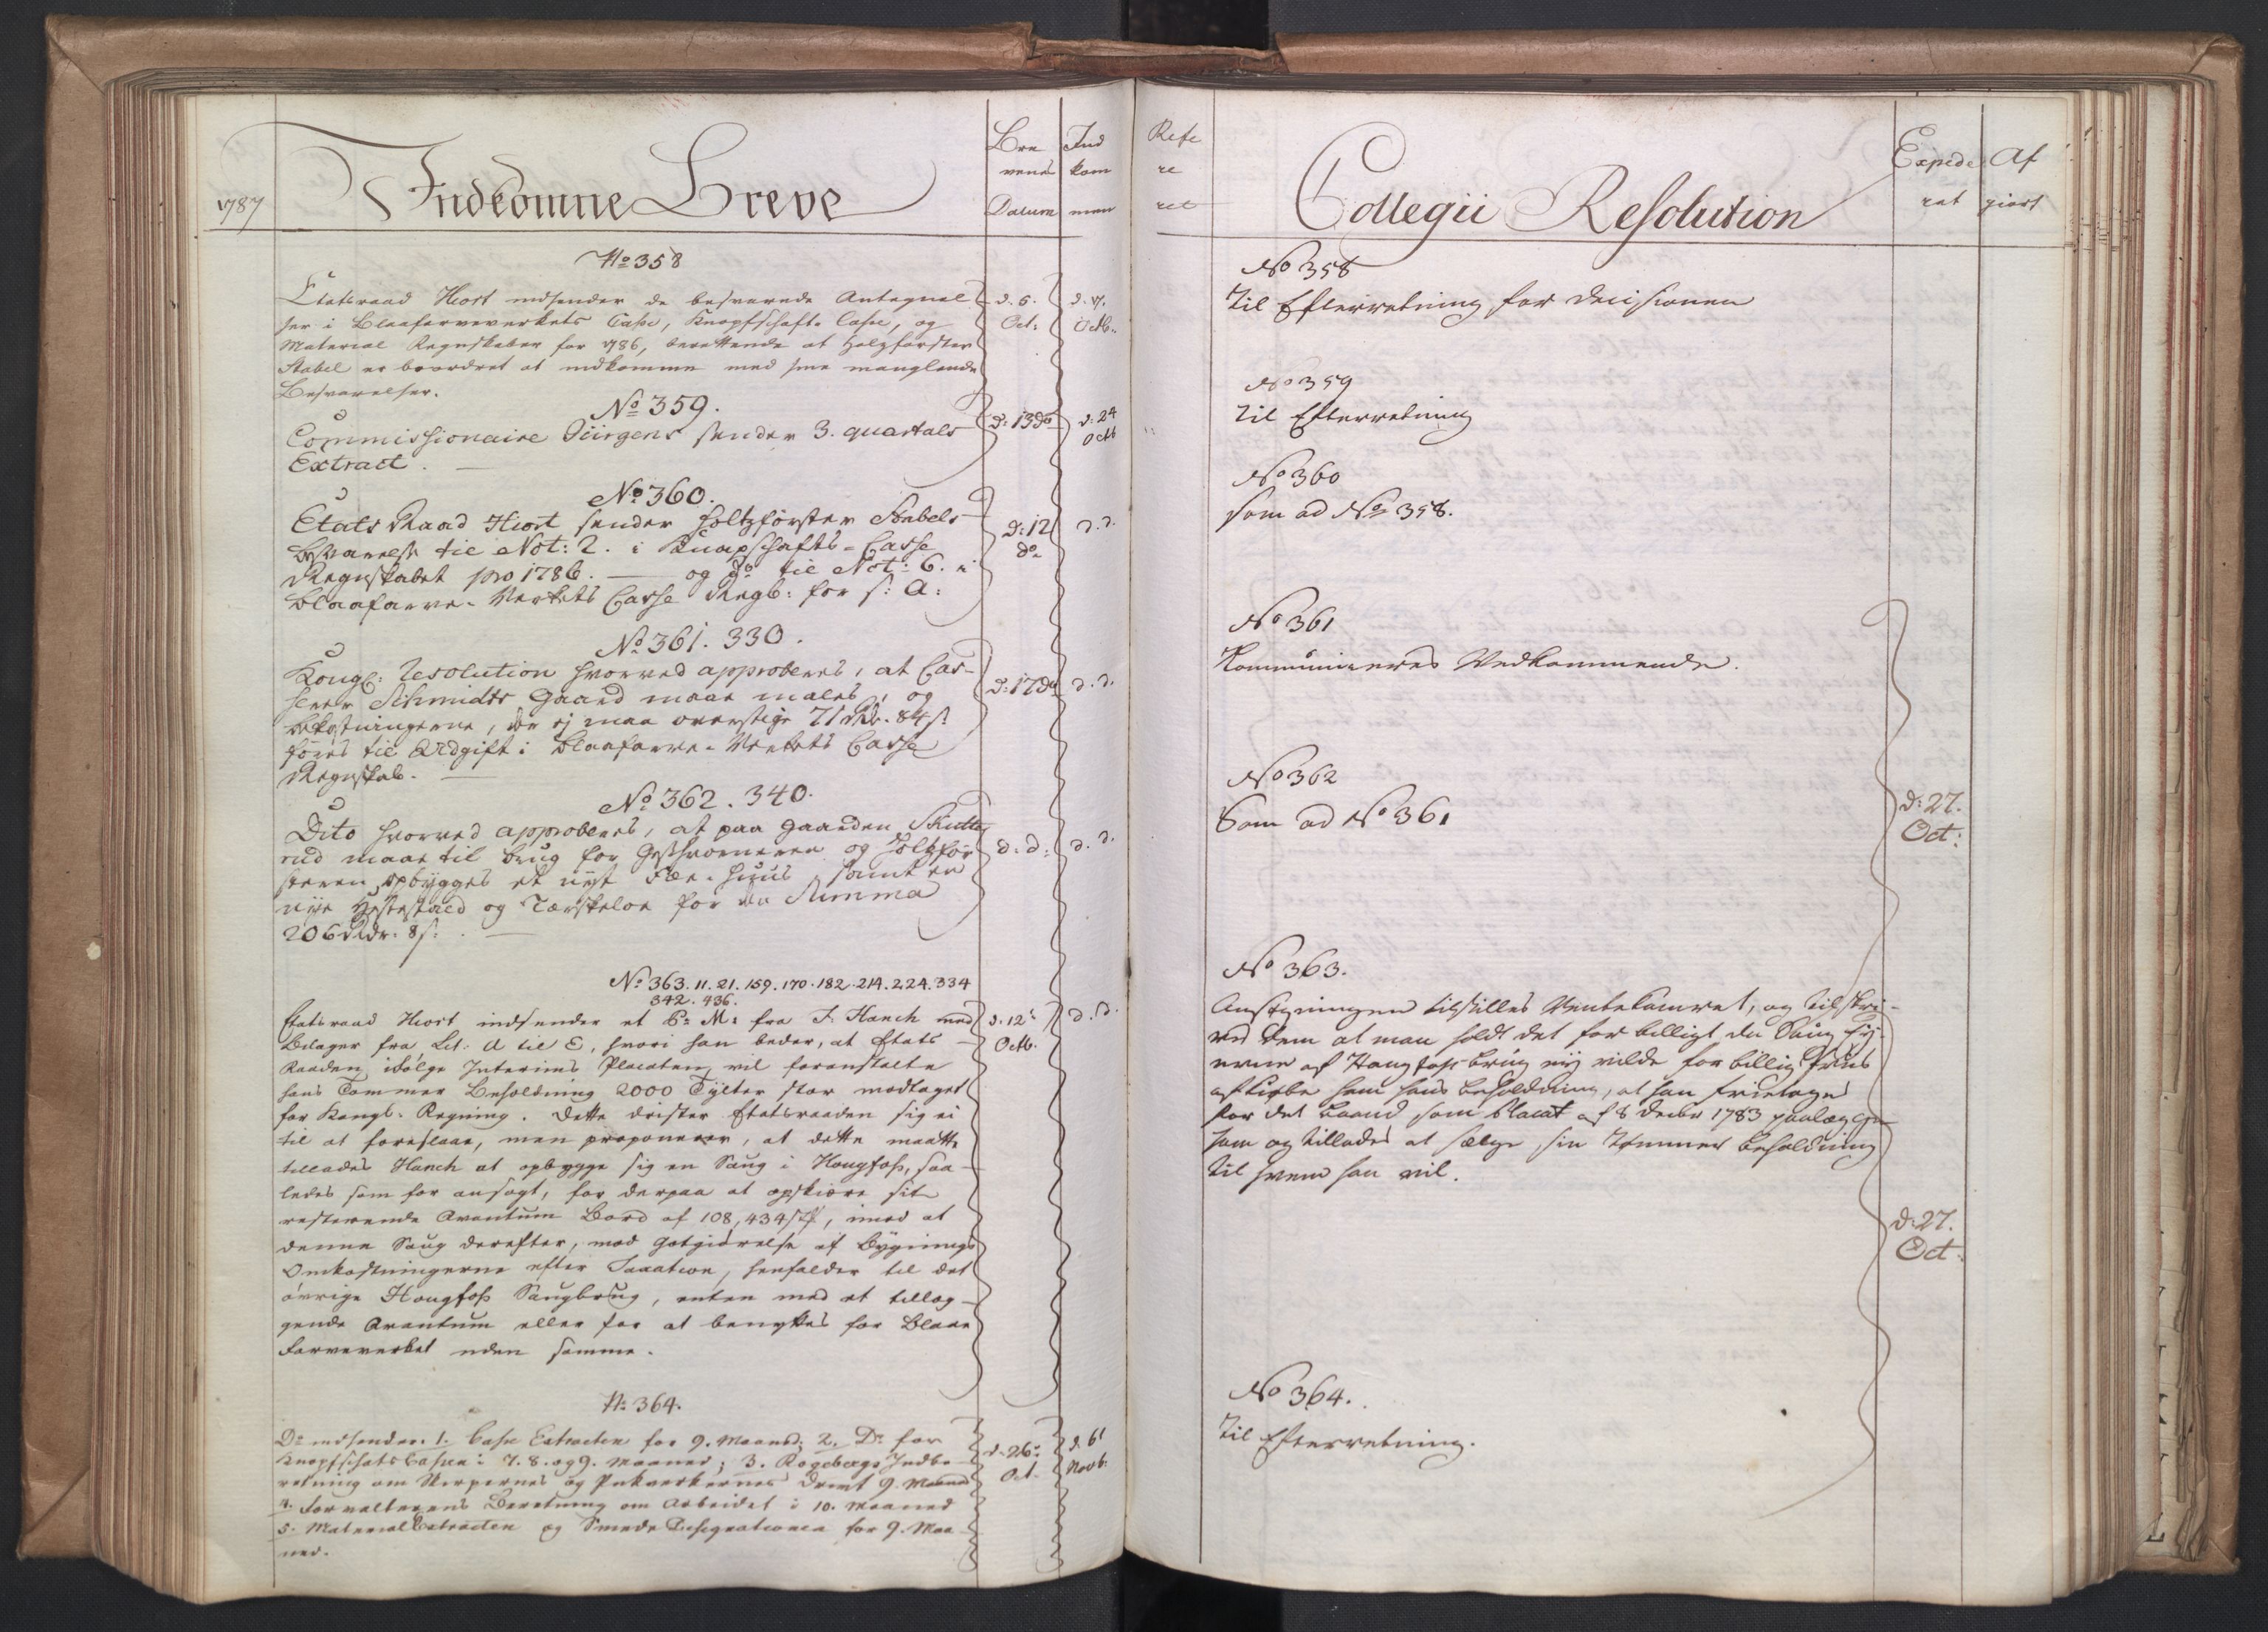 1787
Indkomne Breve
Bre
venes
Datum
Ind
kom
men
No 358
Etatsraad Hiort indsender de besvarede Antegnel
ser i Blaafarveverkets Casse, Knapschafts Casse, og
Material Regnskaber for 1786, berettende at Holzförster
Stabel er beordret at indkomme med sine manglende
Besvarelser.
d. 6.
Oct:
d. 17.
Octb:
No 359.
Commissionaire Jürgens sender 3. quartals
Extract.
d: 13 do
d: 24
Octb
No 360.
Etats Raad Hiort sender Holtzförster Stabels
besvarelse til Not: 2. i Knapschafts-Casse
Regnskabet pro 1786. — og do til Not: 6. i
Blaafarve-Verkets Casse Regb: for s: A:
d: 12
do
d. d.
No 361. 330.
Kongl: Resolution hvorved approberes, at Cas-
serer Schmidts Gaard maae males, og
bekostningerne, der ej maa overstige 71 Rdr. 84 s:
föres til Udgift i Blaafarve-Verkets Casse
Regnskab.
d: 17 do
d. d.
No 362. 340.
Dito hvorved approberes, at paa Gaarden Skutte
rud maae til brug for Geschwornerer og Holtzför
steren, opbygges et nyt Fæe-huus samt en
nye Hestestald og Tærskeloe for den Summa
206 Rdr. 8 s:
d: d:
d. d.
No 363. 11. 21. 159. 170. 182. 214. 224. 334
342. 436.
Etatsraad Hiort indsender et P: M: fra J. Hanch med
Bilager fra Lit: A til E, hvori han beder, at Etats
Raaden, ifölge Interims Placaten, vil foranstalte
hans Tommer Beholdning 2000 Tylter stor modtaget
for Kongl. Regning. Dette drister Etatsraaden sig ei
til at foreslaae, men proponerer, at dette maatte
tillades Hanch at opbygge sig en Saug i Hougfoss, saa-
ledes som för ansögt, for derpaa at opskiære sit
resterende Qvantum Bord af 108,434 st, imod at
denne Saug derefter, mod Godtgiörelse af Bygnings
Omkostningerne efter Taxation, henfalder til det
övrige Hougfoss Saugbrug, enten med et tillæg-
gende Qvantum eller for at benyttes for Blaae
Farveverket uden samme.
d. 12
Octb.
d. d.
No 364.
Do indsender: 1. Casse Extracten for 9. Maaned; 2. Do for
Knapschafts Cassen i 7. 8. og 9. Maaned; 3. Rogebergs Indbe-
retning om Skerpernes og Pukverkernes Drivt 9. Maaned
4. Forvalterens Beretning om Arbeidet i 10. Maaned
5. Material Extracten og Smede Designationen for 9. Maa-
ned.
d. 26
Oct.
d. 6
Novb.
Refe
re
ret
Collegii Resolution
Expede
ret
Af
giort
No 358
Til Efterretning for Decisionen
No 359
Til Efterretning
No 360
som ad No 358.
No 361
Kommuniceres Vedkommende.
No 362
Som ad No 361
d: 27.
Oct:
No 363.
Ansögningen tilstilles Rentekamret, og tilskri-
ves dem at man holdt det for billigt da Saug Ej-
erne af Haugfoss brug ej vilde for billig Priis
afkiöbe ham hans beholdning, at han frietages
for det Baand som Placat af 8 Decbr 1783 paalægger
ham og tillades at sælge sin Tömmer Beholdning
til hvem han vil.
d: 27.
Oct:
No 364.
Til Efterretning.